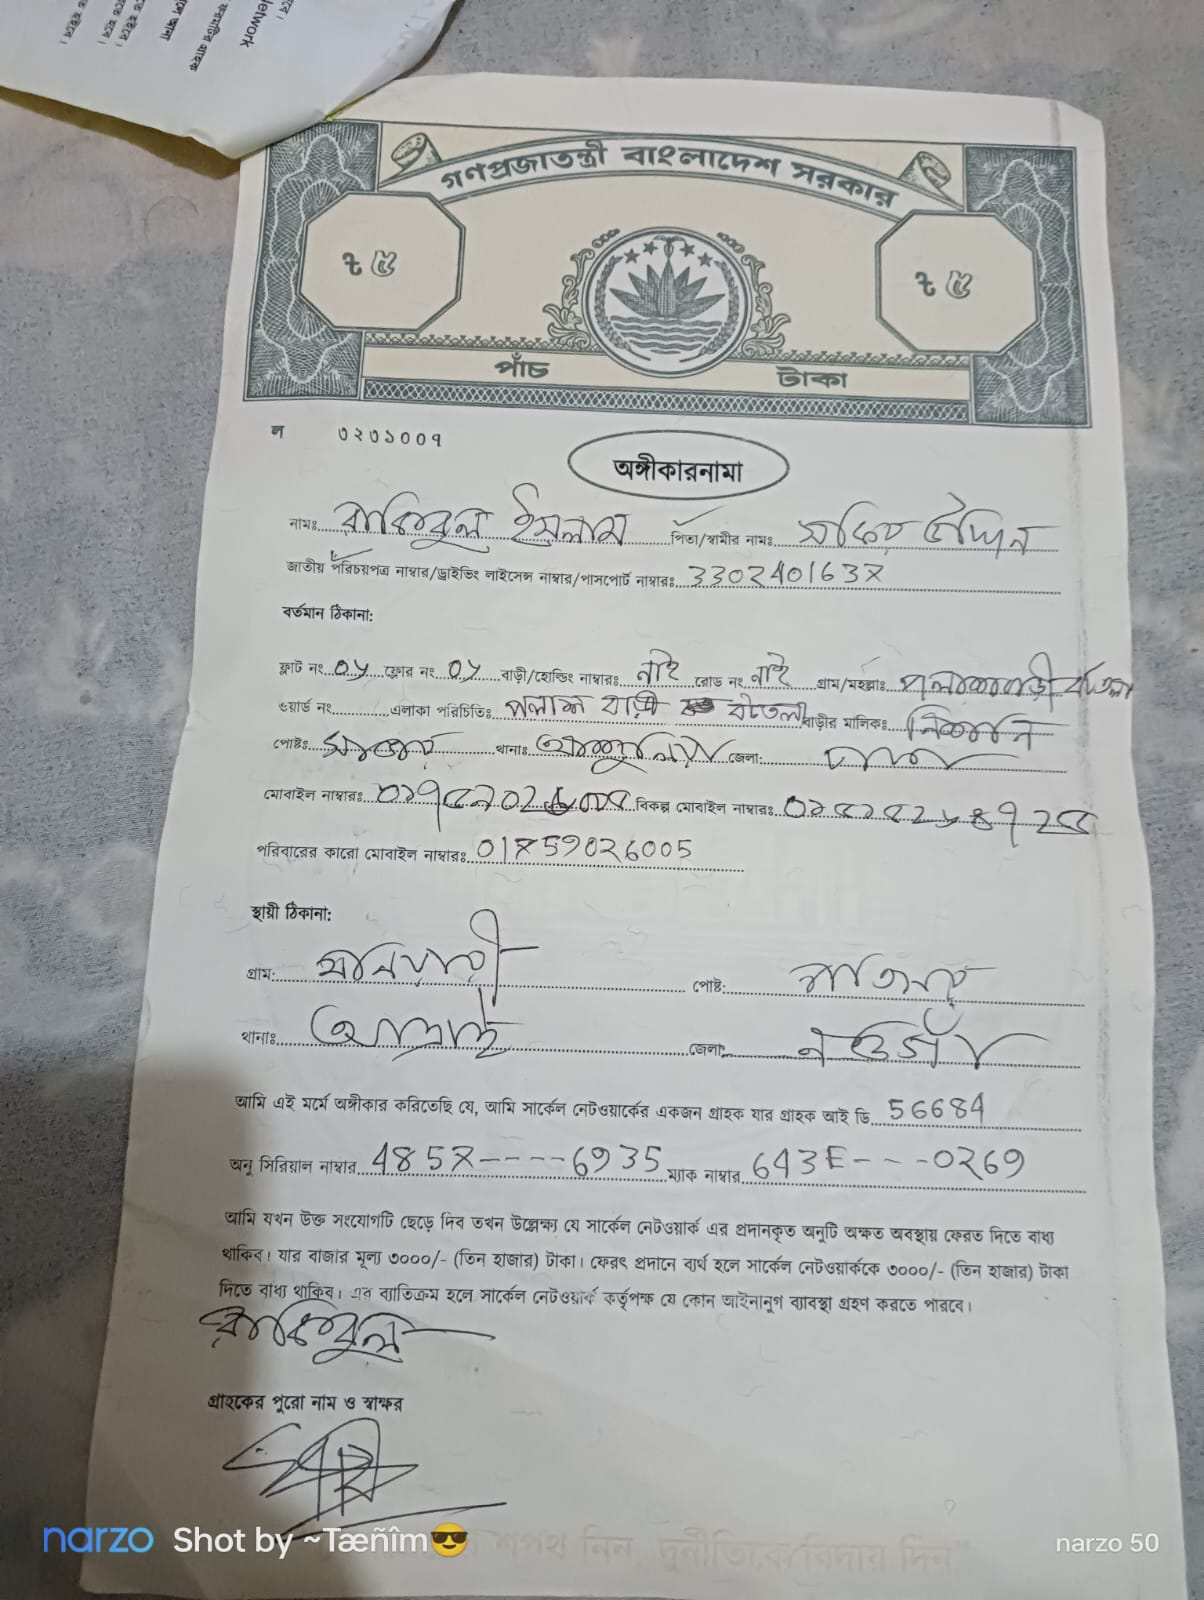 Network
গণপ্রজাতন্ত্রী বাংলাদেশ সরকার
৳ ৫ ৳ ৫
পাঁচ টাকা
ল ৩২৩১০০৭
অঙ্গীকারনামা
নামঃ রাকিবুল ইসলাম পিতা/স্বামীর নামঃ
জাতীয় পরিচয়পত্র নাম্বার/ড্রাইভিং লাইসেন্স নাম্বার/পাসপোর্ট নাম্বারঃ
বর্তমান ঠিকানা:
ফ্লাট নং ফ্লোর নং বাড়ী/হোল্ডিং নাম্বারঃ নাই রোড নং নাই গ্রাম/মহল্লাঃ
ওয়ার্ড নং এলাকা পরিচিতিঃ পলাশ বাড়ী বাড়ীর মালিকঃ
পোষ্টঃ থানাঃ আশুলিয়া জেলা: ঢাকা
মোবাইল নাম্বারঃ বিকল্প মোবাইল নাম্বারঃ
পরিবারের কারো মোবাইল নাম্বারঃ
স্থায়ী ঠিকানা:
গ্রাম: পোষ্ট:
থানাঃ আত্রাই জেলা: নওগাঁ
আমি এই মর্মে অঙ্গীকার করিতেছি যে, আমি সার্কেল নেটওয়ার্কের একজন গ্রাহক যার গ্রাহক আই ডি 56684
অনু সিরিয়াল নাম্বার ম্যাক নাম্বার
আমি যখন উক্ত সংযোগটি ছেড়ে দিব তখন উল্লেক্ষ্য যে সার্কেল নেটওয়ার্ক এর প্রদানকৃত অনুটি অক্ষত অবস্থায় ফেরত দিতে বাধ্য
থাকিব। যার বাজার মূল্য ৩০০০/- (তিন হাজার) টাকা। ফেরৎ প্রদানে ব্যর্থ হলে সার্কেল নেটওয়ার্ককে ৩০০০/- (তিন হাজার) টাকা
দিতে বাধ্য থাকিব। এর ব্যাতিক্রম হলে সার্কেল নেটওয়ার্ক কর্তৃপক্ষ যে কোন আইনানুগ ব্যাবস্থা গ্রহণ করতে পারবে।
রাকিবুল
গ্রাহকের পুরো নাম ও স্বাক্ষর
শপথ নিন, দুর্নীতিকে বিদায় দিন
narzo Shot by ~Tæñîm😎 narzo 50